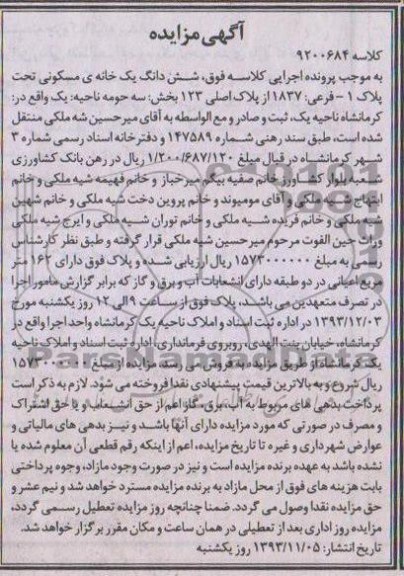 آگهی مزایده
کلاسه ۹۲۰۰۶۸۴
به موجب پرونده اجرایی کلاسه فوق، شش دانگ یک خانه ی مسکونی تحت
پلاک ۱ - فرعی: ۱۸۳۷ از پلاک اصلی ۱۲۳ بخش: سه حومه ناحیه: یک واقع در:
کرمانشاه ناحیه یک، ثبت و صادر و مع الواسطه به آقای میرحسین شه ملکی منتقل
شده است، طبق سند رهنی شماره ۱۴۷۵۸۹ و دفترخانه اسناد رسمی شماره ۳
شهر کرمانشاه در قبال مبلغ ۱/۲۰۰/۶۸۷/۱۲۰ ریال در رهن بانک کشاورزی
شعبه بلوار کشاورز خانم صفیه بیگم میرخباز و خانم فهیمه شیه ملکی و خانم
ابتهاج شیه ملکی و آقای مومیوند و خانم پروین دخت شیه ملکی و خانم شهین
شیه ملکی و خانم فریده شیه ملکی و خانم توران شیه ملکی و ایرج شیه ملکی
وراث حین الفوت مرحوم میرحسین شیه ملکی قرار گرفته و طبق نظر کارشناس
رسمی به مبلغ ۱۵۷۳۰۰۰۰۰۰ ریال ارزیابی شده و پلاک فوق دارای ۱۶۲ متر
مربع اعیانی در دو طبقه دارای انشعابات آب و برق و گاز که برابر گزارش مامور اجرا
در تصرف متعهدین می باشد، پلاک فوق از ساعت ۹ الی ۱۲ روز یکشنبه مورخ
۱۳۹۳/۱۲/۰۳ در اداره ثبت اسناد و املاک ناحیه یک کرمانشاه واحد اجرا واقع در
کرمانشاه، خیابان بنت الهدی، روبروی فرمانداری، اداره ثبت اسناد و املاک ناحیه
یک کرمانشاه از طریق مزایده به فروش می رسد. مزایده از مبلغ ۱۵۷۳۰۰۰۰۰۰
ریال شروع و به بالاترین قیمت پیشنهادی نقدا فروخته می شود. لازم به ذکر است
پرداخت بدهی های مربوط به آب، برق، گاز اعم از حق انشعاب و یا حق اشتراک
و مصرف در صورتی که مورد مزایده دارای آنها باشد و نیز بدهی های مالیاتی و
عوارض شهرداری و غیره تا تاریخ مزایده، اعم از اینکه رقم قطعی آن معلوم شده یا
نشده باشد به عهده برنده مزایده است و نیز در صورت وجود مازاد، وجوه پرداختی
بابت هزینه های فوق از محل مازاد به برنده مزایده مسترد خواهد شد و نیم عشر و
حق مزایده نقدا وصول می گردد. ضمنا چنانچه روز مزایده تعطیل رسمی گردد،
مزایده روز اداری بعد از تعطیلی در همان ساعت و مکان مقرر برگزار خواهد شد.
تاریخ انتشار: ۱۳۹۳/۱۱/۰۵ روز یکشنبه
ParsNamadData